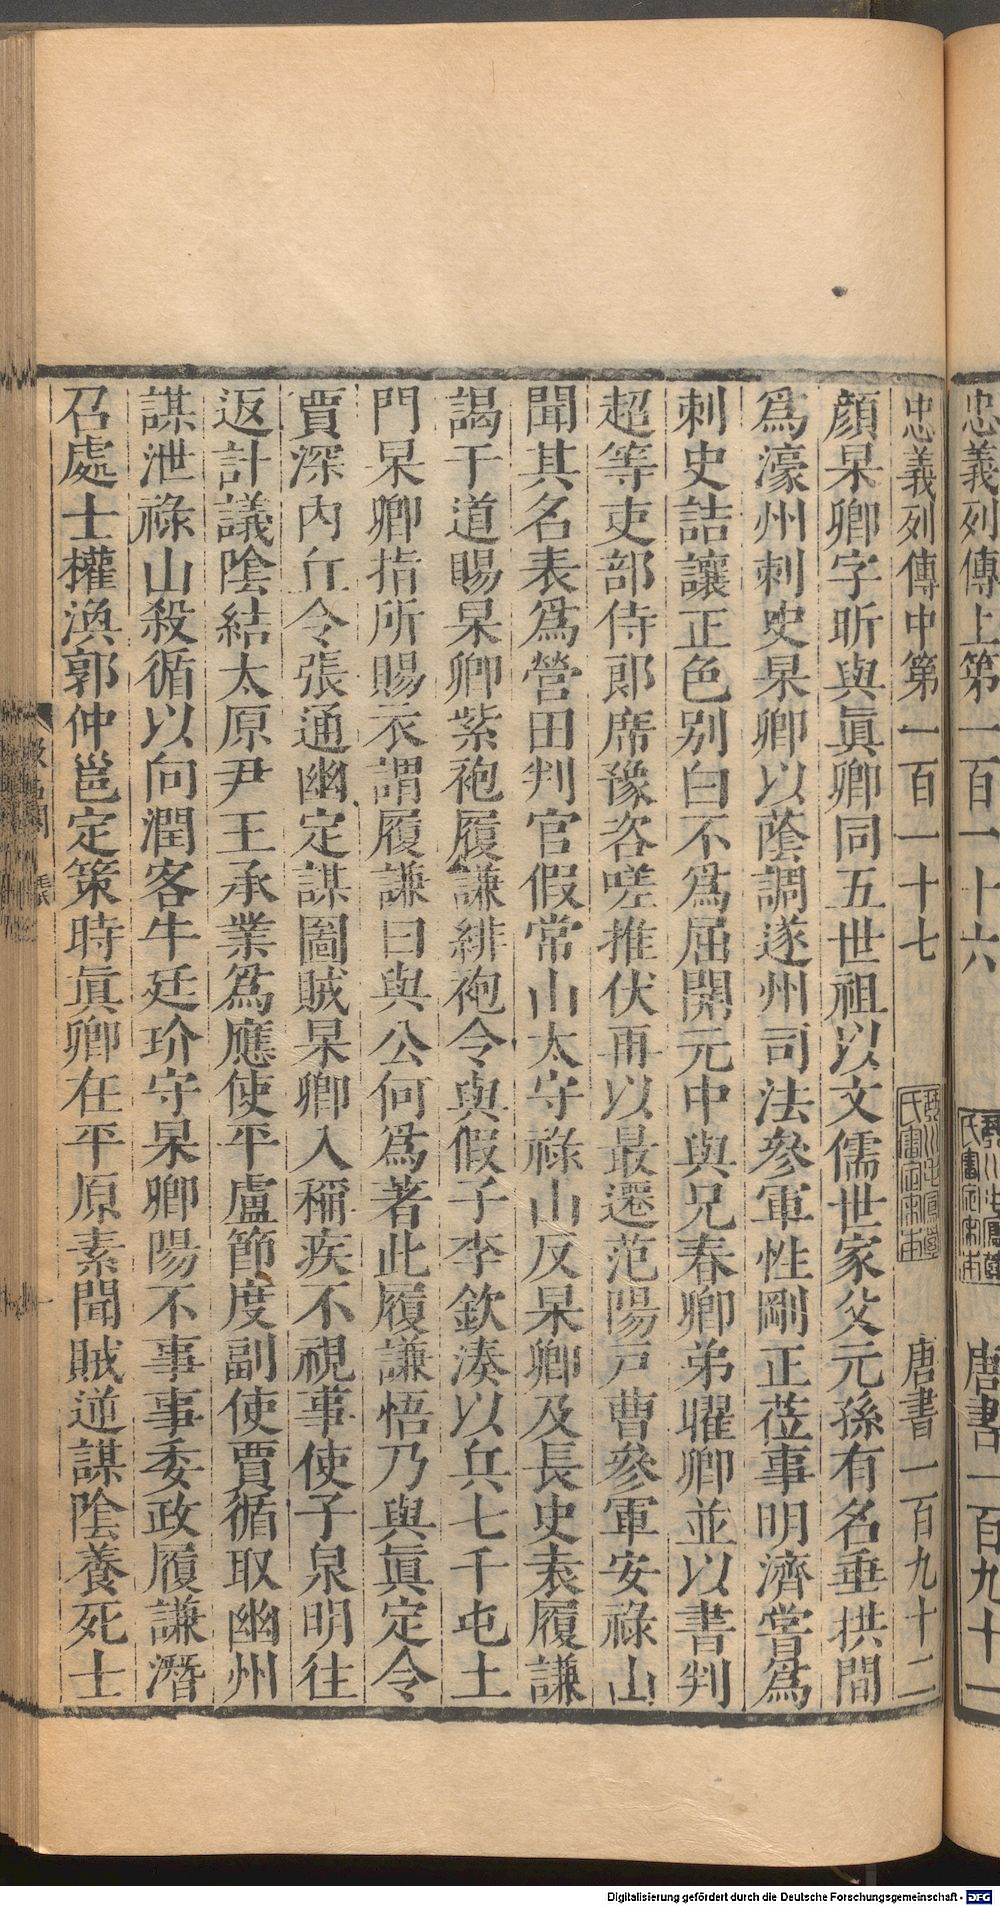 忠義列傳上第一百一十六
唐書一百九十一
忠義列傳中第一百一十七
唐書一百九十二
顏杲卿字昕與眞卿同五世祖以文儒世家父元孫有名垂拱間
爲濠州刺史杲卿以蔭調遂州司法參軍性剛正莅事明濟嘗爲
刺史詰讓正色別白不爲屈開元中與兄春卿弟曜卿並以書判
超等吏部侍郎席豫咨嗟推伏再以最遷范陽戸曹參軍安祿山
聞其名表爲營田判官假常山太守祿山反杲卿及長史袁履謙
謁于道賜杲卿紫袍履謙緋袍令與假子李欽湊以兵七千屯土
門杲卿指所賜衣謂履謙曰與公何爲著此履謙悟乃與眞定令
賈深內丘令張通幽定謀圖賊杲卿入稱疾不視事使子泉明往
返計議陰結太原尹王承業爲應使平盧節度副使賈循取幽州
謀泄祿山殺循以向潤客牛廷玠守杲卿陽不事事委政履謙潛
召處士權渙郭仲邕定策時眞卿在平原素聞賊逆謀陰養死士
Digitalisierung gefördert durch die Deutsche Forschungsgemeinschaft - DFG